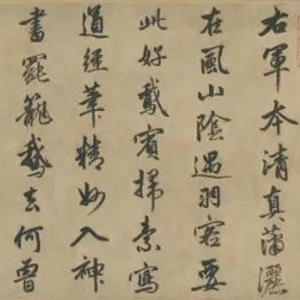 右軍本清真蕭灑
在風山陰遇羽客要
此好鵞賓掃素寫
道經筆精妙入神
書罷籠鵞去何曾